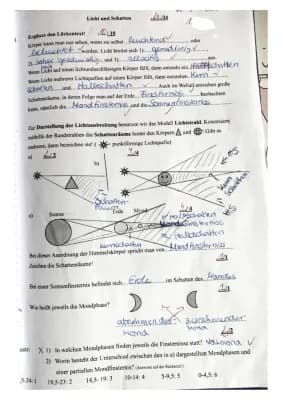 Licht und Schatten
Ergänze den Lückentext!
Körper kann man nur sehen, wenn sie selbst leuchtend oder
beleuchtet werden. Licht breitet sich 1)
und
Wenn Licht auf einen lichtundurchlässigen Körper fällt, dann entsteht ein
Wenn Licht mehrerer Lichtquellen auf einen Körper fällt, dann entstehen Kern
schatten und Halbschatten. Auch im Weltall entstehen große
Schattenräume, in deren Folge man auf der Erde Finsternisse beobachten
kann, nämlich die Mondfinsternis und die Sonnenfinsternis
Zur Darstellung der Lichtausbreitung benutzen wir das Modell Lichtstrahl. Konstruiere
mithilfe der Randstrahlen die Schattenräume hinter den Körpern und Gib es
mehrere, dann bezeichne sie! ( punktförmige Lichtquelle)
a)
b)
HS
Kern
schatten
HS
Schatten
raum
c)
Sonne
Erde
Mond
Halbschatten
Halbschatten
Kernschatten
Bei dieser Anordnung der Himmelskörper spricht man von Mondfinsternis
Zeichne die Schattenräume!
Bei einer Sonnenfinsternis befindet sich Erde im Schatten des Mondes
Wie heißt jeweils die Mondphase?
abnehmender
Mond
zunehmender
Mond
1) In welchen Mondphasen finden jeweils die Finsternisse statt? Vollmond
2) Worin besteht der Unterschied zwischen den in a) dargestellten Mondphasen und
einer partiellen Mondfinsternis? (Antworte auf der Rückseite!)
19,5-23: 2 14,5- 19: 3 10-14: 4 5-9,5: 5 0-4,5: 6